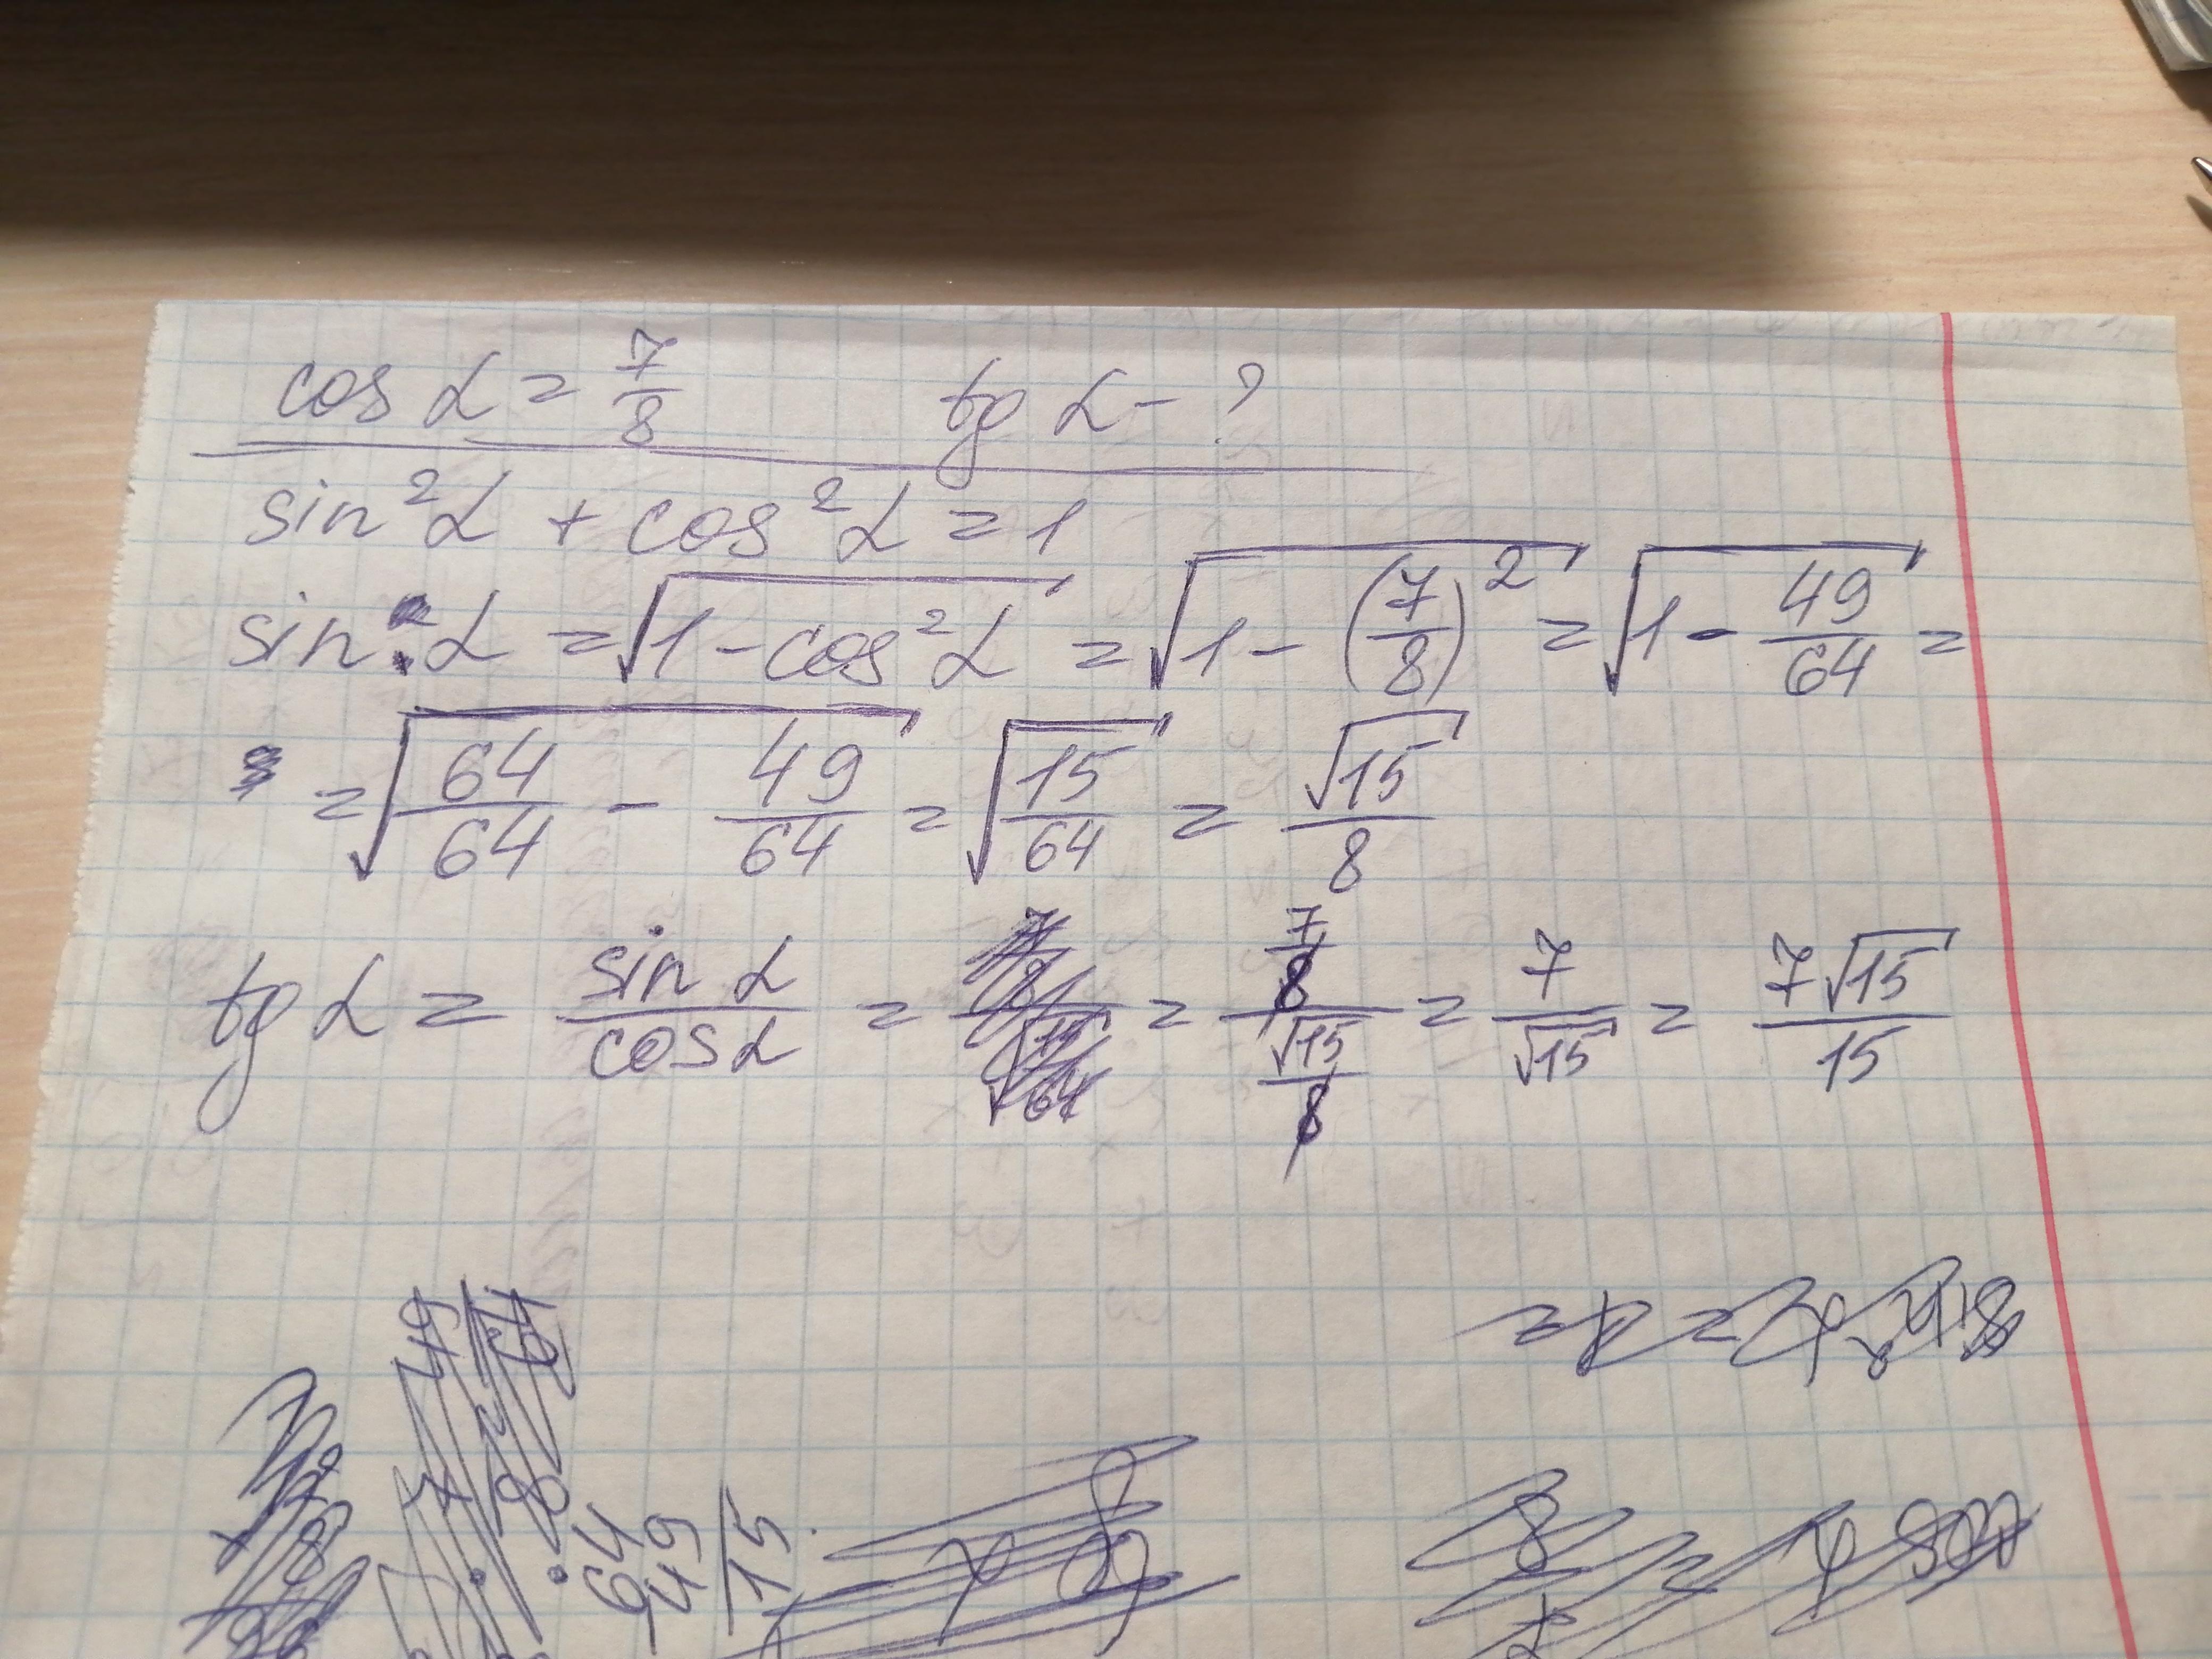 cos α = 7/8    tg α - ?
sin²α + cos²α = 1
sin α = √(1 - cos²α) = √(1 - (7/8)²) = √(1 - 49/64) =
= √(64/64 - 49/64) = √(15/64) = √15/8
tg α = sin α/cos α = = (7/8)/(√15/8) = 7/√15 = 7√15/15
64
49
15